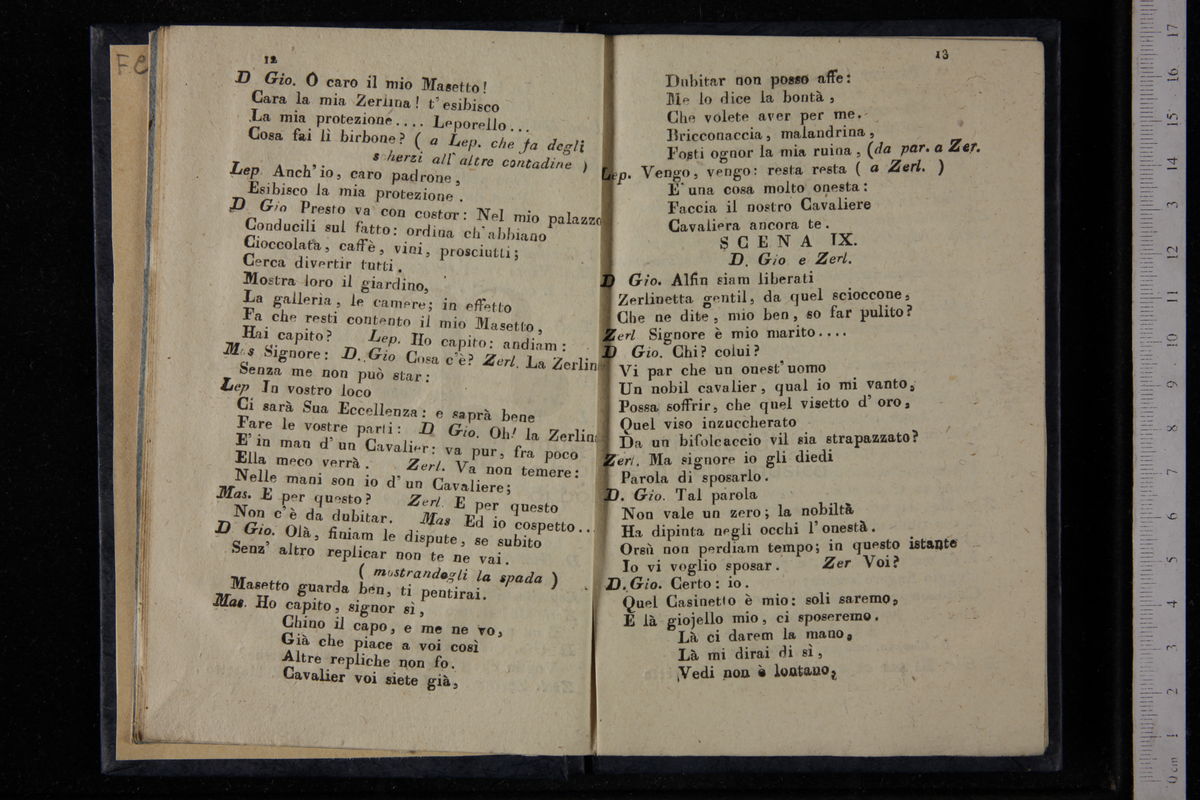 F.e
12
D Gio. O caro il mio Masetto!
Cara la mia Zerlina! t' esibisco
La mia protezione.... Leporello...
Cosa fai lì birbone? ( a Lep. che fa degli
scherzi all' altre contadine )
Lep Anch' io, caro padrone,
Esibisco la mia protezione.
D Gio Presto va con costor: Nel mio palazzo
Conducili sul fatto: ordina ch' abbiano
Cioccolata, caffè, vini, prosciutti;
Cerca divertir tutti.
Mostra loro il giardino,
La galleria, le camere; in effetto
Fa che resti contento il mio Masetto,
Hai capito? Lep. Ho capito: andiam:
Mas Signore: D. Gio Cosa c'è? Zerl. La Zerlin
Senza me non può star:
Lep In vostro loco
Ci sarà Sua Eccellenza: e saprà bene
Fare le vostre parti: D Gio. Oh! la Zerlin
E' in man d' un Cavalier: va pur, fra poco
Ella meco verrà. Zerl. Va non temere:
Nelle mani son io d' un Cavaliere;
Mas. E per questo? Zerl E per questo
Non c'è da dubitar. Mas Ed io cospetto..
D Gio. Olà, finiam le dispute, se subito
Senz' altro replicar non te ne vai.
( mostrandogli la spada )
Masetto guarda ben, ti pentirai.
Mas. Ho capito, signor sì,
Chino il capo, e me ne vo,
Già che piace a voi così
Altre repliche non fo.
Cavalier voi siete già,
13
Dubitar non posso affe:
Me lo dice la bontà,
Che volete aver per me.
Bricconaccia, malandrina,
Fosti ognor la mia ruina, (da par. a Zer.
Lep. Vengo, vengo: resta resta ( a Zerl. )
E' una cosa molto onesta:
Faccia il nostro Cavaliere
Cavaliera ancora te.
SCENA IX.
D. Gio e Zerl.
D Gio. Alfin siam liberati
Zerlinetta gentil, da quel scioccone,
Che ne dite, mio ben, so far pulito?
Zerl Signore è mio marito....
D Gio. Chi? colui?
Vi par che un onest' uomo
Un nobil cavalier, qual io mi vanto,
Possa soffrir, che quel visetto d' oro,
Quel viso inzuccherato
Da un bifolcaccio vil sia strapazzato?
Zerl. Ma signore io gli diedi
Parola di sposarlo.
D. Gio. Tal parola
Non vale un zero; la nobiltà
Ha dipinta negli occhi l' onestà.
Orsù non perdiam tempo; in questo istante
Io vi voglio sposar. Zer Voi?
D. Gio. Certo: io.
Quel Casinetto è mio: soli saremo,
E là giojello mio, ci sposeremo.
Là ci darem la mano,
Là mi dirai di sì,
Vedi non è lontano,
0 cm 1 2 3 4 5 6 7 8 9 10 11 12 13 14 15 16 17